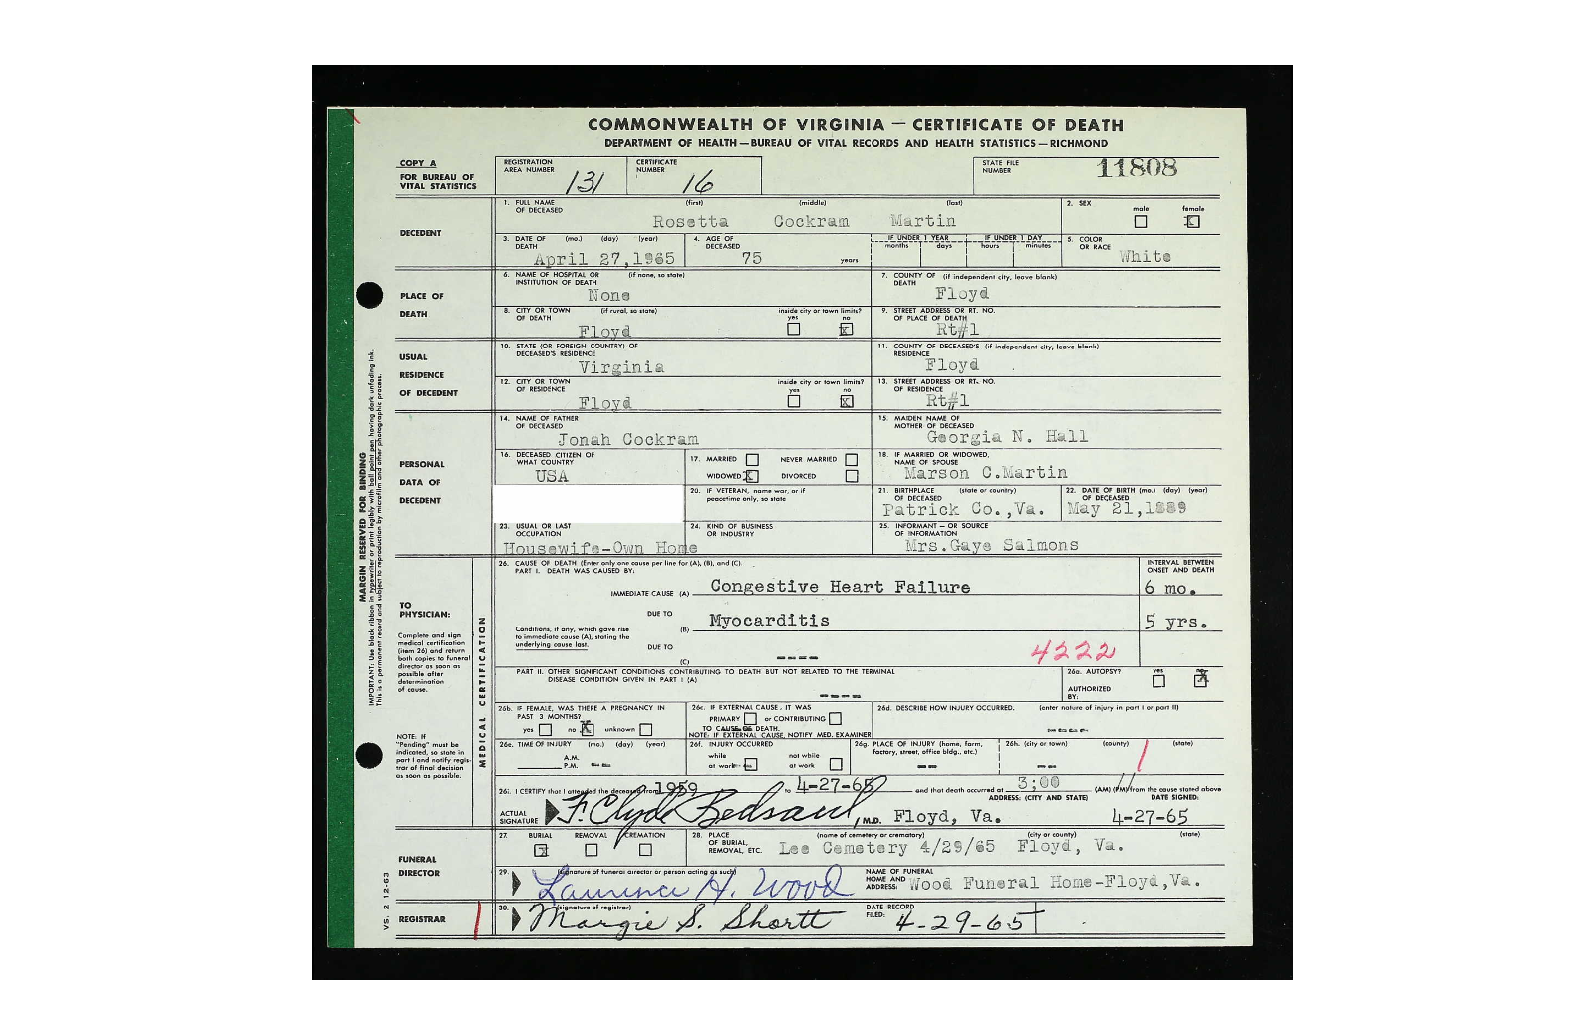 COMMONWEALTH OF VIRGINIA — CERTIFICATE OF DEATH
DEPARTMENT OF HEALTH—BUREAU OF VITAL RECORDS AND HEALTH STATISTICS—RICHMOND
COPY A
FOR BUREAU OF
VITAL STATISTICS
REGISTRATION
AREA NUMBER 131
CERTIFICATE
NUMBER 16
STATE FILE
NUMBER 11808
DECEDENT
1. FULL NAME (first) (middle) (last)
OF DECEASED
Rosetta Cockram Martin
2. SEX male female
X
3. DATE OF (mo.) (day) (year)
DEATH
April 27,1965
4. AGE OF
DECEASED
75 years
IF UNDER 1 YEAR IF UNDER 1 DAY
months days hours minutes
5. COLOR
OR RACE
White
PLACE OF
DEATH
6. NAME OF HOSPITAL OR (if none, so state)
INSTITUTION OF DEATH
None
7. COUNTY OF (if independent city, leave blank)
DEATH
Floyd
8. CITY OR TOWN (if rural, so state) inside city or town limits?
OF DEATH yes no
Floyd X
9. STREET ADDRESS OR RT. NO.
OF PLACE OF DEATH
Rt#1
USUAL
RESIDENCE
OF DECEDENT
10. STATE (OR FOREIGN COUNTRY) OF
DECEASED'S RESIDENCE
Virginia
11. COUNTY OF DECEASED'S (if independent city, leave blank)
RESIDENCE
Floyd
12. CITY OR TOWN inside city or town limits?
OF RESIDENCE yes no
Floyd X
13. STREET ADDRESS OR RT. NO.
OF RESIDENCE
Rt#1
PERSONAL
DATA OF
DECEDENT
14. NAME OF FATHER
OF DECEASED
Jonah Cockram
15. MAIDEN NAME OF
MOTHER OF DECEASED
Georgia N. Hall
16. DECEASED CITIZEN OF
WHAT COUNTRY
USA
17. MARRIED NEVER MARRIED
WIDOWED X DIVORCED
18. IF MARRIED OR WIDOWED,
NAME OF SPOUSE
Marson C.Martin
20. IF VETERAN, name war, or if
peacetime only, so state
21. BIRTHPLACE (state or country)
OF DECEASED
Patrick Co.,Va.
22. DATE OF BIRTH (mo.) (day) (year)
OF DECEASED
May 21,1889
23. USUAL OR LAST
OCCUPATION
Housewife-Own Home
24. KIND OF BUSINESS
OR INDUSTRY
25. INFORMANT — OR SOURCE
OF INFORMATION
Mrs.Gaye Salmons
MARGIN RESERVED FOR BINDING
IMPORTANT: Use black ribbon in typewriter or print legibly with ball point pen having dark unfading ink.
This is a permanent record and subject to reproduction by microfilm and other photographic process.
TO
PHYSICIAN:
Complete and sign
medical certification
(item 26) and return
both copies to funeral
director as soon as
possible after
determination
of cause.
NOTE: If
"Pending" must be
indicated, so state in
part I and notify regis-
trar of final decision
as soon as possible.
MEDICAL CERTIFICATION
26. CAUSE OF DEATH (Enter only one cause per line for (A), (B), and (C).
PART I. DEATH WAS CAUSED BY:
INTERVAL BETWEEN
ONSET AND DEATH
IMMEDIATE CAUSE (A) Congestive Heart Failure 6 mo.
DUE TO
(B) Myocarditis 5 yrs.
Conditions, if any, which gave rise
to immediate cause (A), stating the
underlying cause last.
DUE TO
(C) ---- 4222
PART II. OTHER SIGNIFICANT CONDITIONS CONTRIBUTING TO DEATH BUT NOT RELATED TO THE TERMINAL
DISEASE CONDITION GIVEN IN PART I (A)
----
26a. AUTOPSY? yes no
X
AUTHORIZED
BY:
26b. IF FEMALE, WAS THERE A PREGNANCY IN
PAST 3 MONTHS?
yes no X unknown
26c. IF EXTERNAL CAUSE, IT WAS
PRIMARY or CONTRIBUTING
TO CAUSE OF DEATH.
NOTE: IF EXTERNAL CAUSE, NOTIFY MED. EXAMINER
26d. DESCRIBE HOW INJURY OCCURRED. (enter nature of injury in part I or part II)
----
26e. TIME OF INJURY (mo.) (day) (year)
A.M.
P.M. --
26f. INJURY OCCURRED
while not while
at work -- at work
26g. PLACE OF INJURY (home, farm,
factory, street, office bldg., etc.)
--
26h. (city or town) (county) (state)
--
26i. I CERTIFY that I attended the deceased from 1959 to 4-27-65 and that death occurred at 3:00 (AM) (PM) from the cause stated above
ADDRESS: (CITY AND STATE) DATE SIGNED:
ACTUAL
SIGNATURE F. Clyde Bedsaul, M.D. Floyd, Va. 4-27-65
FUNERAL
DIRECTOR
27. BURIAL REMOVAL CREMATION
X
28. PLACE (name of cemetery or crematory) (city or county) (state)
OF BURIAL,
REMOVAL, ETC. Lee Cemetery 4/29/65 Floyd, Va.
29. (signature of funeral director or person acting as such)
Laurence H. Wood
NAME OF FUNERAL
HOME AND
ADDRESS: Wood Funeral Home-Floyd,Va.
REGISTRAR
30. (signature of registrar)
Margie S. Shortt
DATE RECORD
FILED: 4-29-65
VS. 2 12-63